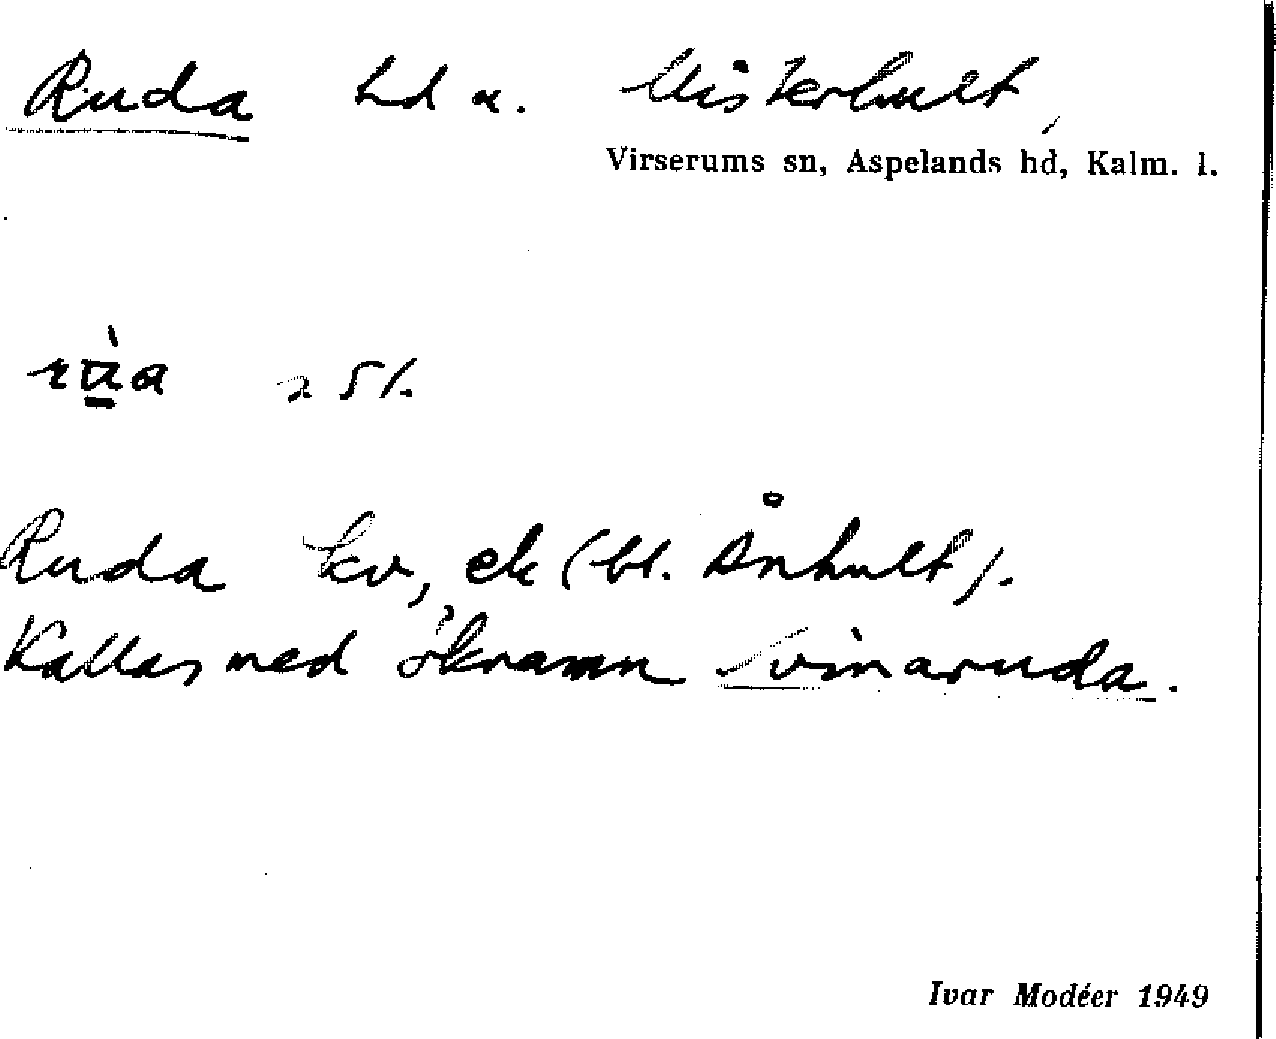 Ruda hd u. Misterhult,
Virserums sn, Aspelands hd, Kalm. l.
51.
Ruda kv, ek (bl. Ånhult).
Kallas med öknamn Svinaruda.
Ivar Modéer 1949